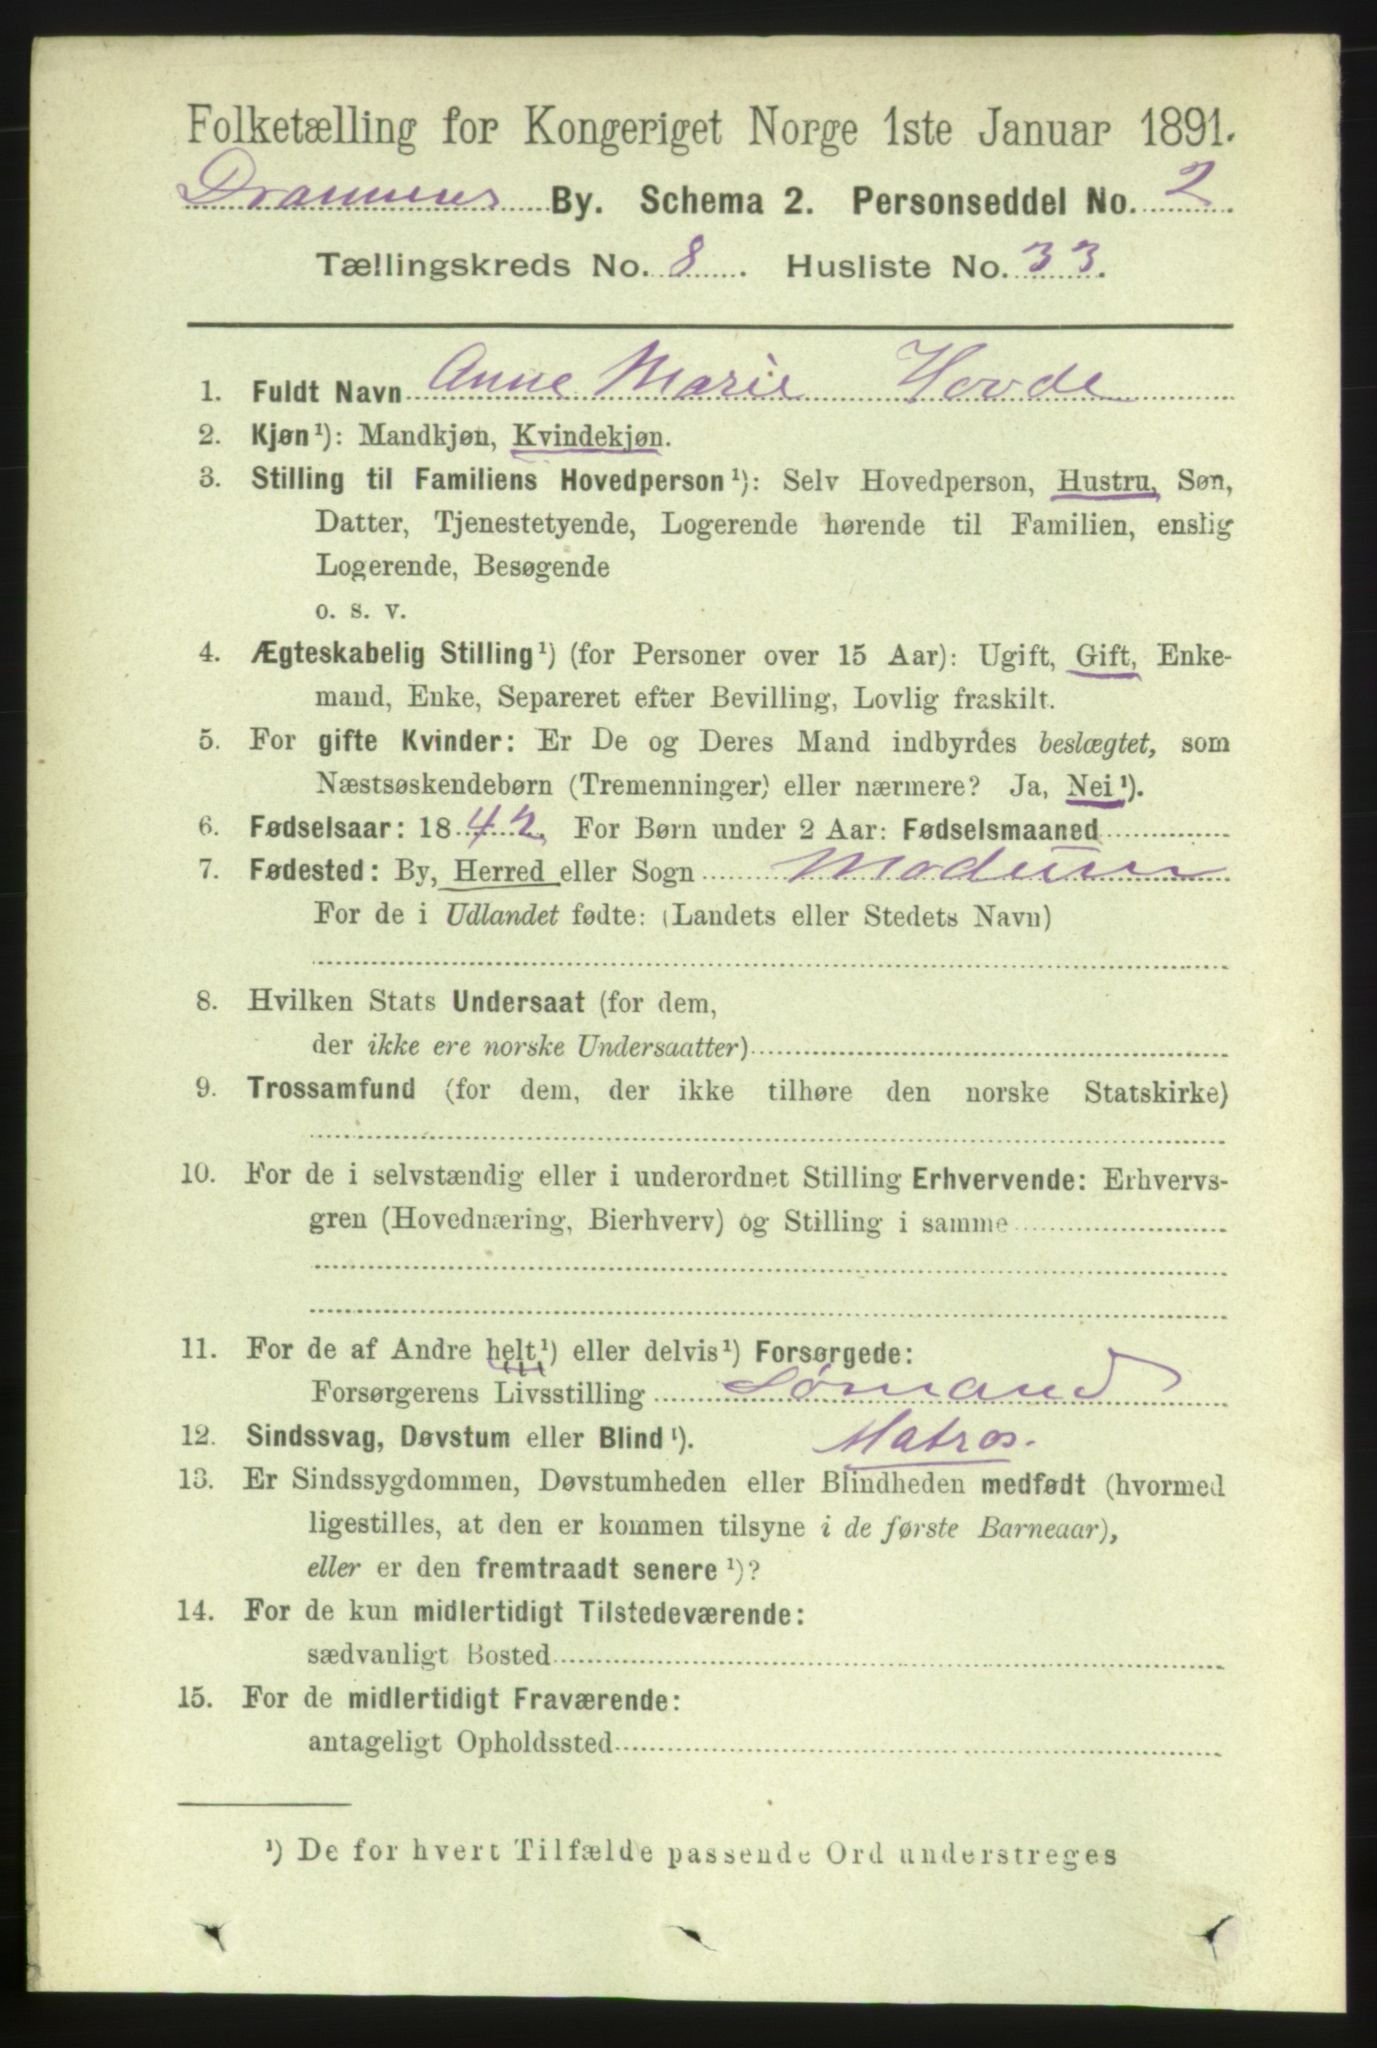 Folketælling for Kongeriget Norge 1ste Januar 1891.
Drammens By. Schema 2. Personseddel No. 2
Tællingskreds No. 8. Husliste No. 33.
1. Fuldt Navn Anne Marie Hovde
2. Kjøn¹): Mandkjøn, Kvindekjøn.
3. Stilling til Familiens Hovedperson¹): Selv Hovedperson, Hustru, Søn,
Datter, Tjenestetyende, Logerende hørende til Familien, enslig
Logerende, Besøgende
o. s. v.
4. Ægteskabelig Stilling¹) (for Personer over 15 Aar): Ugift, Gift, Enke-
mand, Enke, Separeret efter Bevilling, Lovlig fraskilt.
5. For gifte Kvinder: Er De og Deres Mand indbyrdes beslægtet, som
Næstsøskendebørn (Tremenninger) eller nærmere? Ja, Nei¹).
6. Fødselsaar: 1842, For Børn under 2 Aar: Fødselsmaaned
7. Fødested: By, Herred eller Sogn Modum
For de i Udlandet fødte: (Landets eller Stedets Navn)
8. Hvilken Stats Undersaat (for dem,
der ikke ere norske Undersaatter)
9. Trossamfund (for dem, der ikke tilhøre den norske Statskirke)
10. For de i selvstændig eller i underordnet Stilling Erhvervende: Erhvervs-
gren (Hovednæring, Bierhverv) og Stilling i samme
11. For de af Andre helt¹) eller delvis¹) Forsørgede:
Forsørgerens Livsstilling Sømand
12. Sindssvag, Døvstum eller Blind¹). Matros.
13. Er Sindssygdommen, Døvstumheden eller Blindheden medfødt (hvormed
ligestilles, at den er kommen tilsyne i de første Barneaar),
eller er den fremtraadt senere¹)?
14. For de kun midlertidigt Tilstedeværende:
sædvanligt Bosted
15. For de midlertidigt Fraværende:
antageligt Opholdssted
¹) De for hvert Tilfælde passende Ord understreges